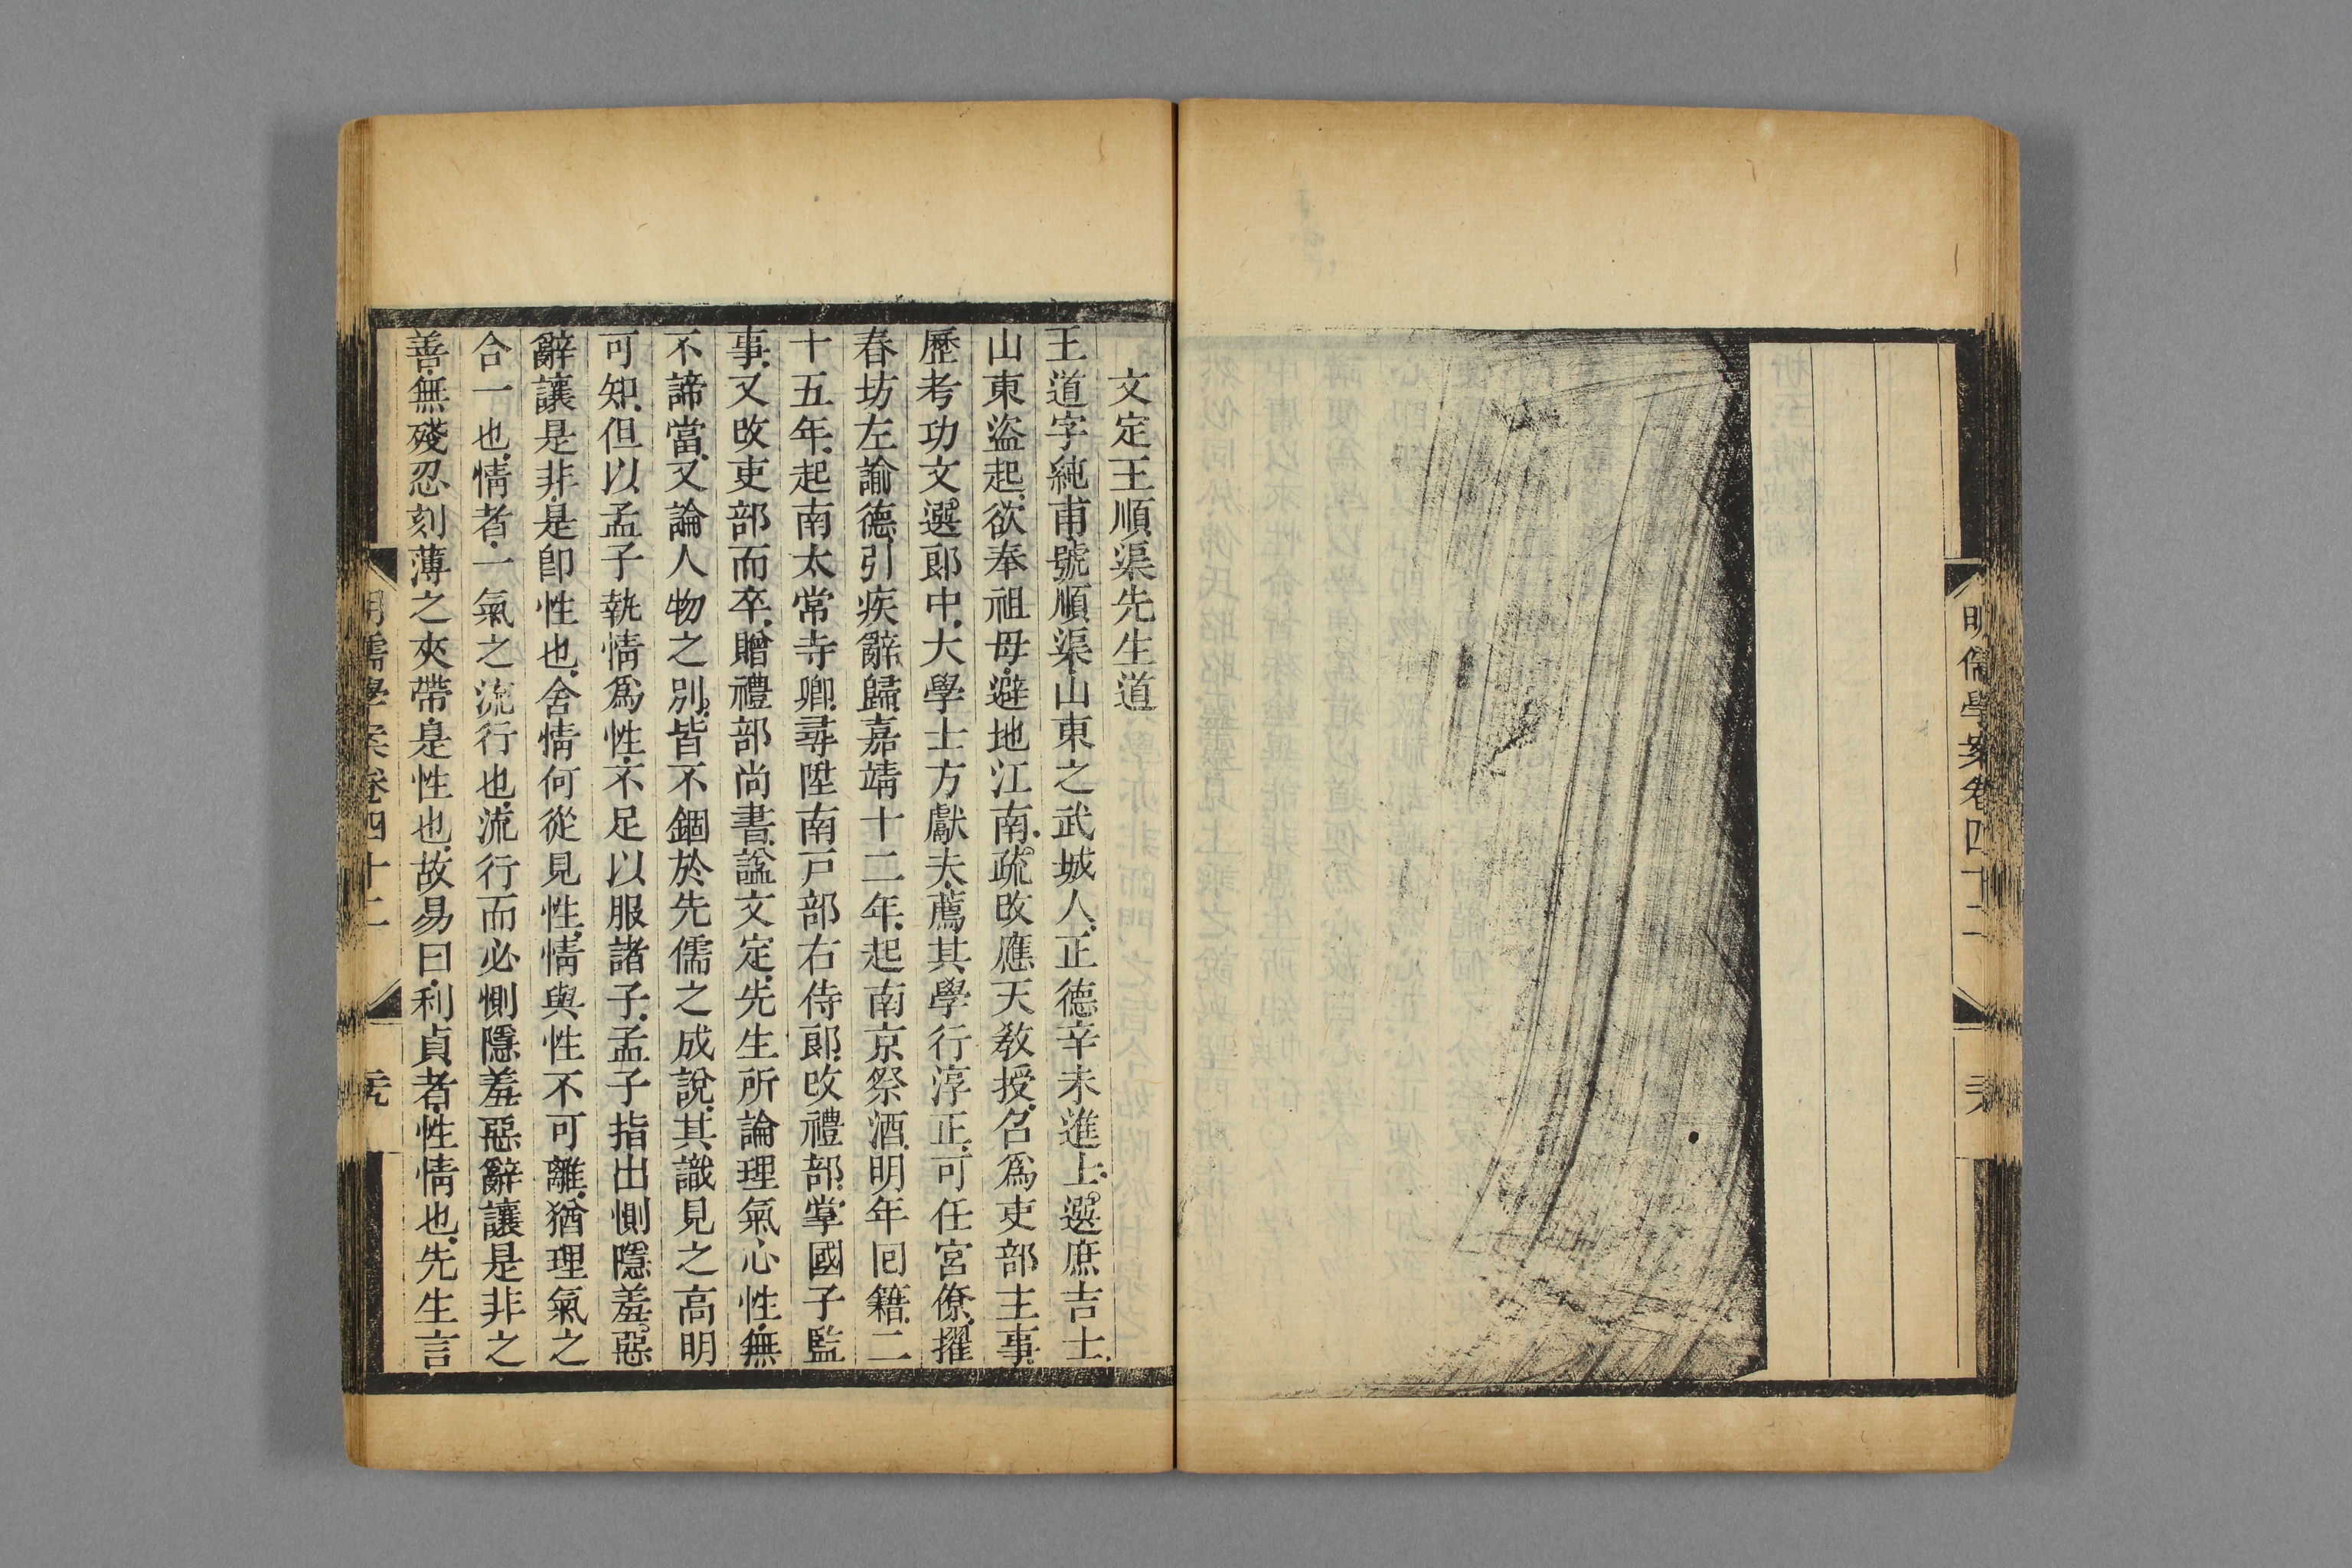 明儒學案卷四十二
文定王順渠先生道
王道字純甫號順渠山東之武城人正德辛未進士選庶吉士
山東盜起欲奉祖母避地江南疏改應天教授召爲吏部主事
歷考功文選郎中大學士方獻夫薦其學行淳正可任宮僚擢
春坊左諭德引疾辭歸嘉靖十二年起南京祭酒明年回籍二
十五年起南太常寺卿尋陞南戸部右侍郎改禮部掌國子監
事又改吏部而卒贈禮部尚書諡文定先生所論理氣心性無
不諦當又論人物之別皆不錮於先儒之成說其識見之高明
可知但以孟子執情爲性不足以服諸子孟子指出惻隱羞惡
辭讓是非是卽性也舍情何從見性情與性不可離猶理氣之
合一也情者一氣之流行也流行而必惻隱羞惡辭讓是非之
善無殘忍刻薄之夾帶是性也故易曰利貞者性情也先生言
明儒學案卷四十二